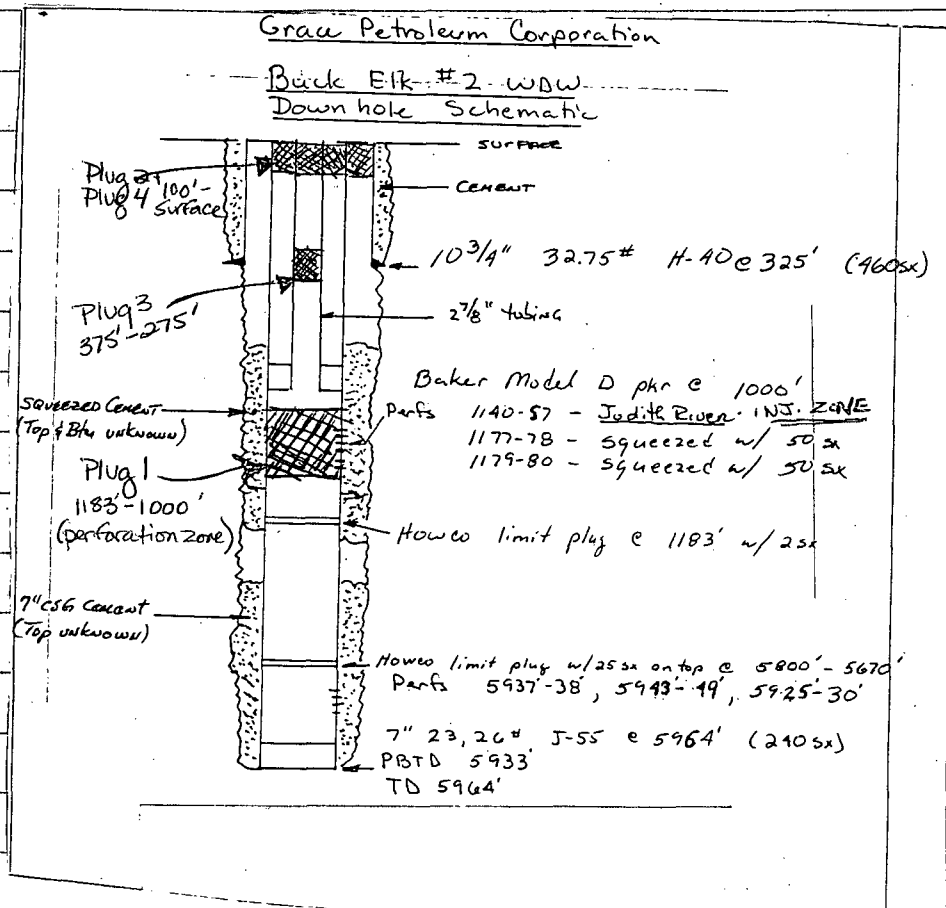 Grace Petroleum Corporation
Buck Elk #2 WDW
Downhole Schematic
SURFACE
Plug 2+
Plug 4 100'-
Surface
CEMENT
10 3/4" 32.75# H-40 @ 325' (460sx)
Plug 3
375'-275'
2 7/8" tubing
Baker Model D pkr @ 1000'
Perfs 1140-57 - Judith River INJ. ZONE
1177-78 - squeezed w/ 50 sx
1179-80 - squeezed w/ 50 sx
SQUEEZED CEMENT
(Top & Btm unknown)
Plug 1
1183'-1000'
(perforation zone)
Howco limit plug @ 1183' w/ 2sx
7" CSG Cement
(Top unknown)
Howco limit plug w/25 sx on top @ 5800'-5670'
Perfs 5937'-38', 5943'-49', 5925-30'
7" 23, 26# J-55 @ 5964' (240 sx)
PBTD 5933'
TD 5964'